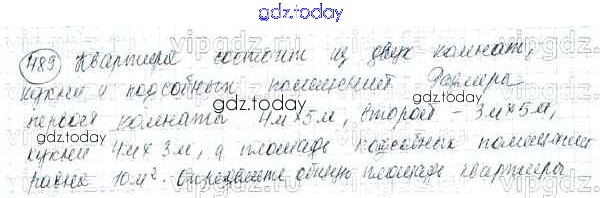 gdz.today
489 Квартира состоит из двух комнат,
кухни и подсобных помещений. Размеры
gdz.today
первой комнаты 4м×5м, второй – 3м×5м,
кухни 4м×3м, а площадь подсобных помещений
равна 10м². Определите общую площадь квартиры
gdz.today
gdz.today